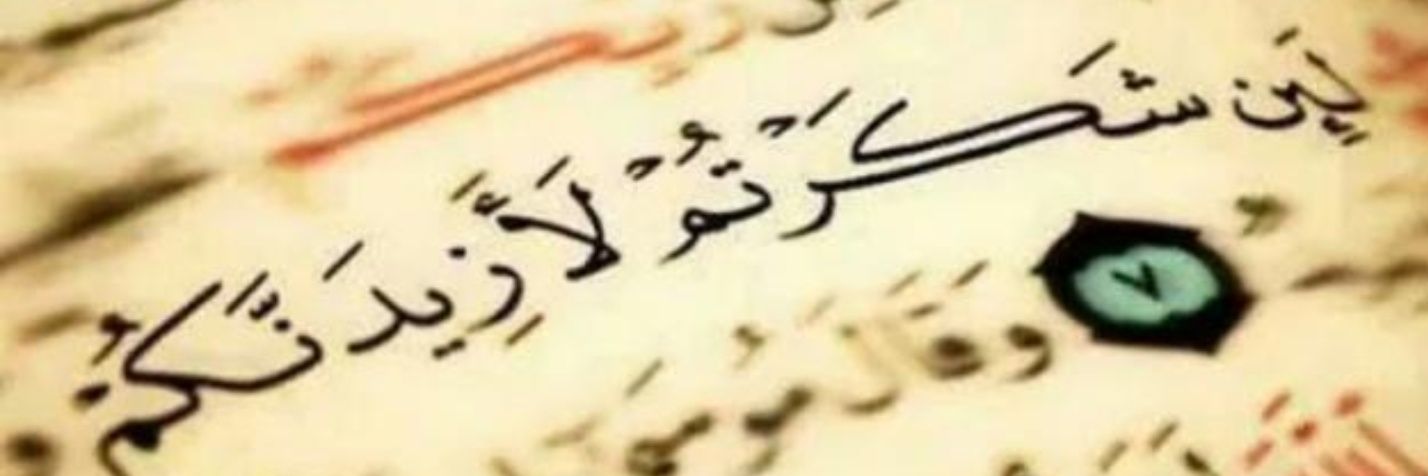 لَئِن شَكَرْتُمْ لَأَزِيدَنَّكُمْ
٧ وَقَالَ مُوسَى